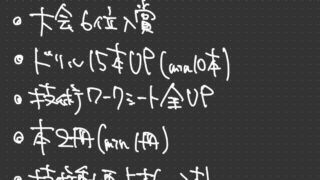 • 大会6位入賞
• ドリル15本UP(min10本)
• 技術ワークシート全UP
• 本2冊(min1冊)